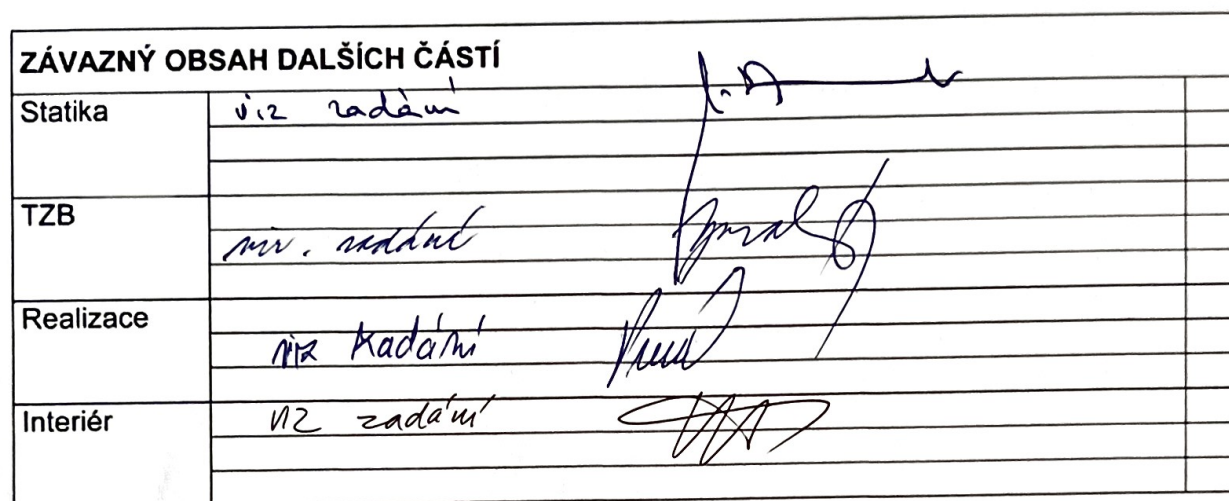 ZÁVAZNÝ OBSAH DALŠÍCH ČÁSTÍ
Statika viz zadání
TZB viz. zadání
Realizace viz zadání
Interiér viz zadání